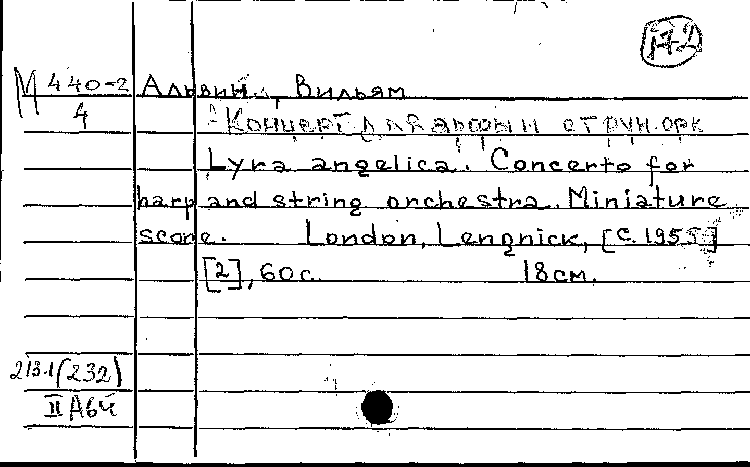 172
М 440-2 Альвин, Вильям
4
Концерт для арфы и струн. орк
Lyra angelica. Concerto for
harp and string orchestra. Miniature
score. London, Lengnick, [c. 1955]
[2], 60 с. 18 см.
213.1(232)
II А64